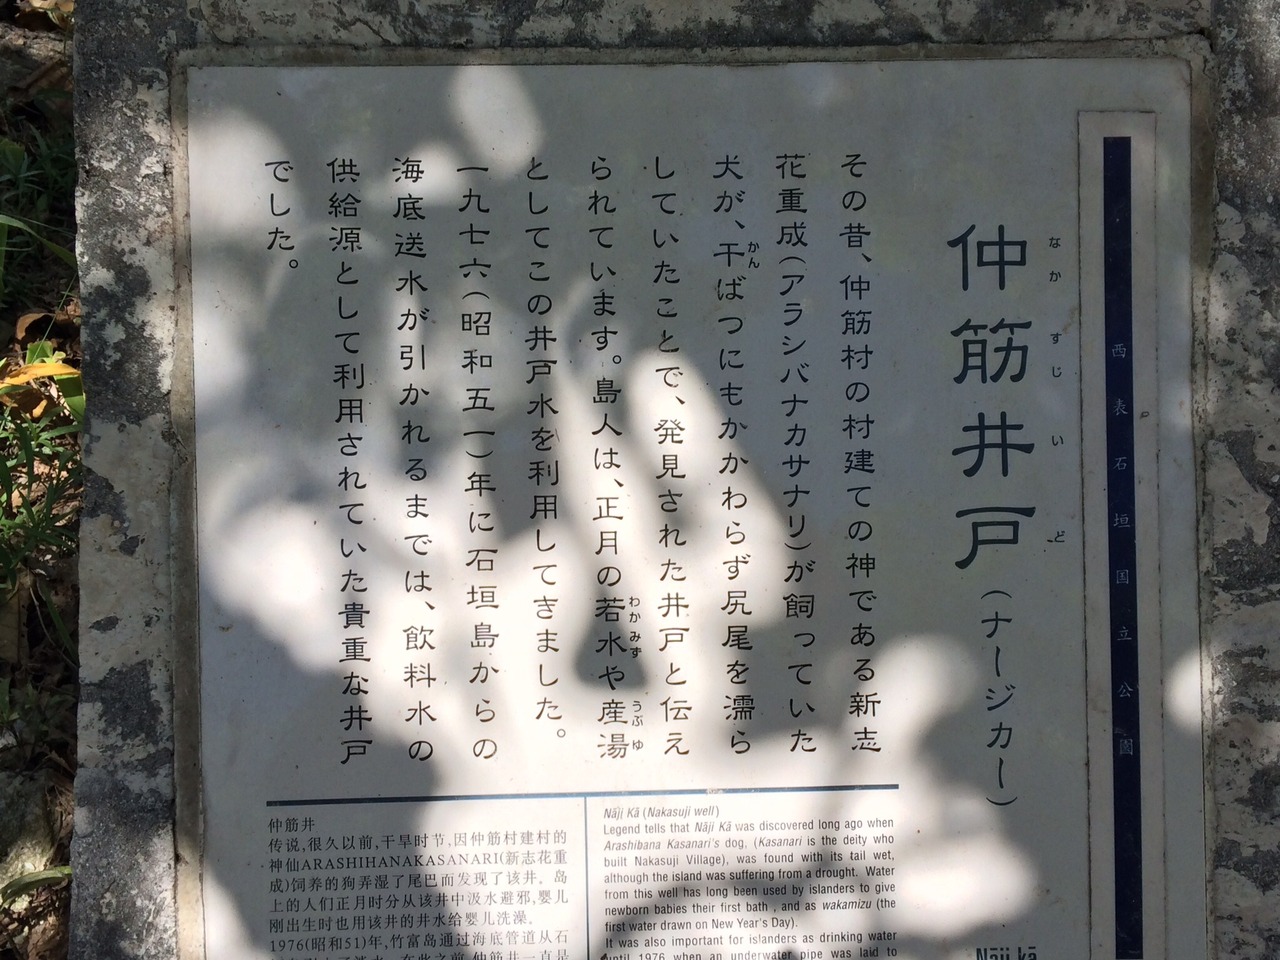 西表石垣国立公園
なかすじいど
仲筋井戸(ナージカー)
その昔、仲筋村の村建ての神である新志
花重成(アラシバナカサナリ)が飼っていた
犬が、干ばつにもかかわらず尻尾を濡ら
かん
していたことで、発見された井戸と伝え
られています。島人は、正月の若水や産湯
わかみず うぶゆ
としてこの井戸水を利用してきました。
一九七六(昭和五一)年に石垣島からの
海底送水が引かれるまでは、飲料水の
供給源として利用されていた貴重な井戸
でした。
仲筋井
传说,很久以前,干旱时节,因仲筋村建村的
神仙ARASHIHANAKASANARI(新志花重
成)饲养的狗弄湿了尾巴而发现了该井。岛
上的人们正月时分从该井中汲水避邪,婴儿
刚出生时也用该井的井水给婴儿洗澡。
1976(昭和51)年,竹富岛通过海底管道从石
Nāji Kā (Nakasuji well)
Legend tells that Nāji Kā was discovered long ago when
Arashibana Kasanari's dog. (Kasanari is the deity who
built Nakasuji Village), was found with its tail wet,
although the island was suffering from a drought. Water
from this well has long been used by islanders to give
newborn babies their first bath , and as wakamizu (the
first water drawn on New Year's Day).
It was also important for islanders as drinking water
until 1976 when an underwater pipe was laid to
Nāji kā